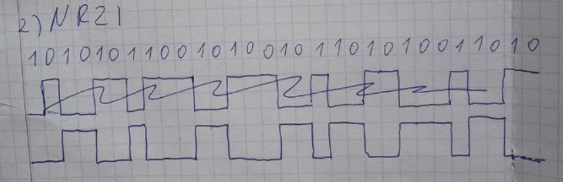 2) NRZI
1 0 1 0 1 0 1 1 0 0 1 0 1 0 0 1 0 1 1 0 1 0 1 0 0 1 1 0 1 0